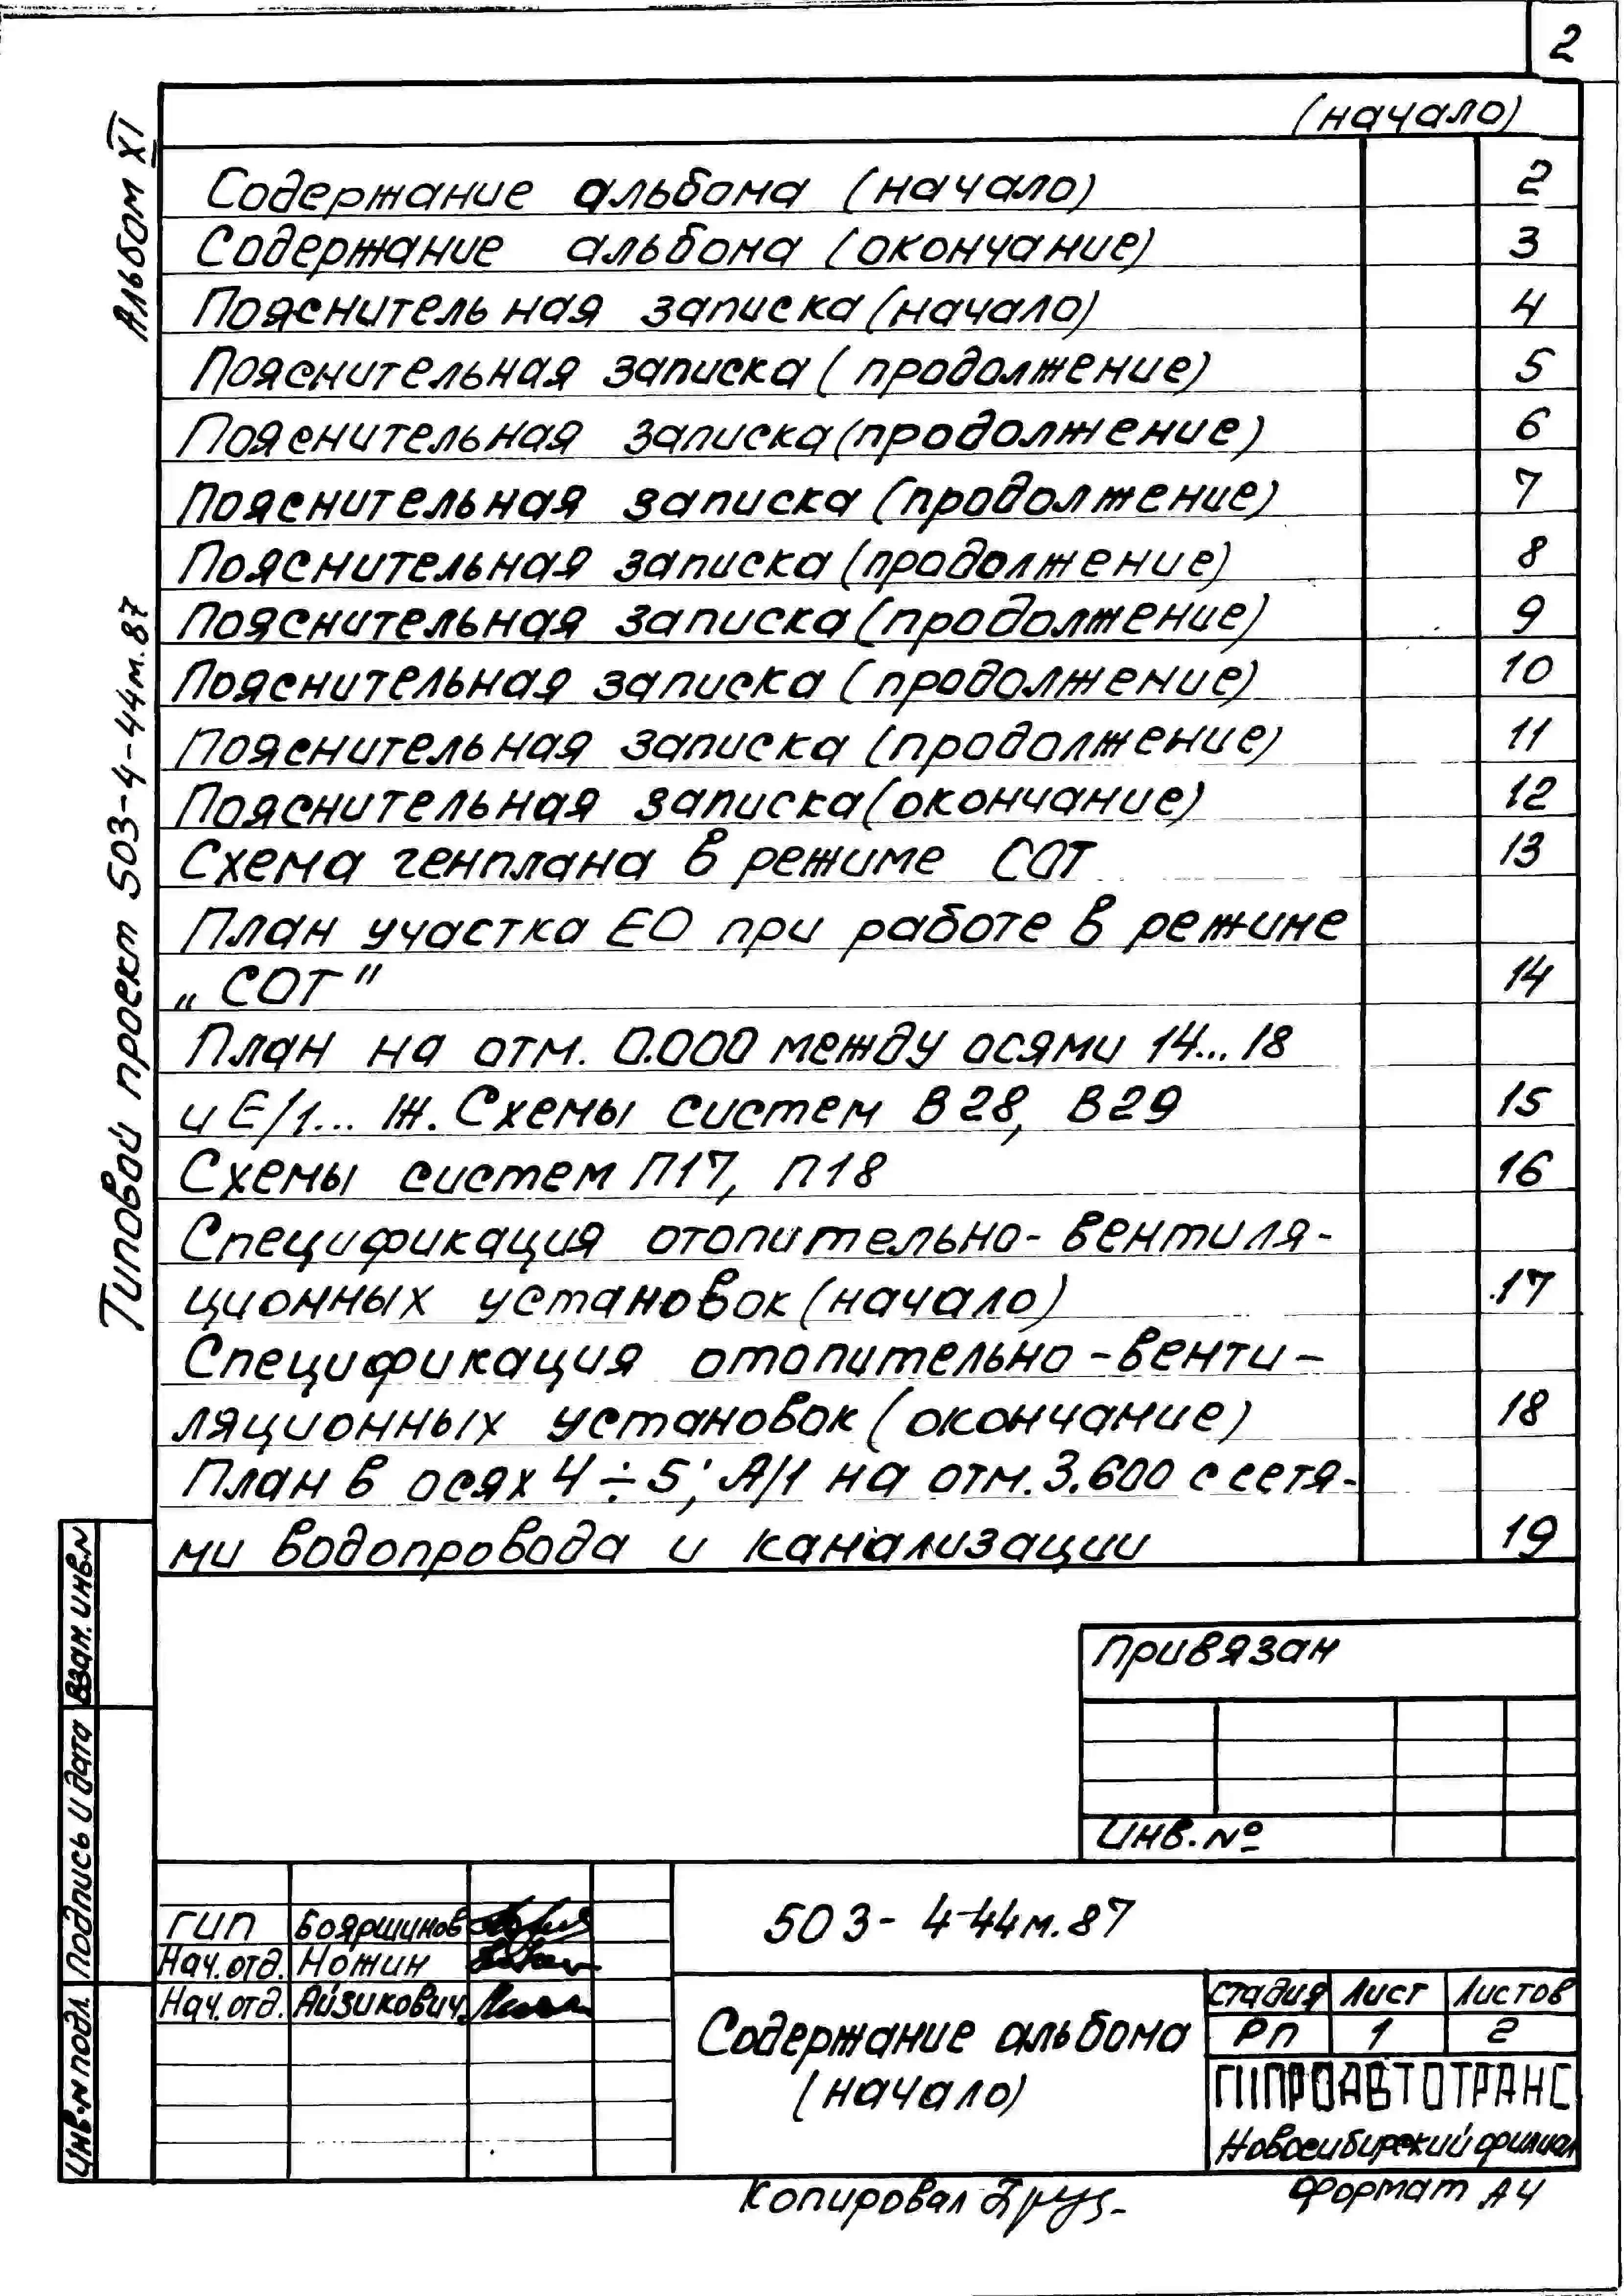 2
Альбом XI
Типовой проект 503-4-44м.87
(начало)
Содержание альбома (начало) 2
Содержание альбома (окончание) 3
Пояснительная записка (начало) 4
Пояснительная записка (продолжение) 5
Пояснительная записка (продолжение) 6
Пояснительная записка (продолжение) 7
Пояснительная записка (продолжение) 8
Пояснительная записка (продолжение) 9
Пояснительная записка (продолжение) 10
Пояснительная записка (продолжение) 11
Пояснительная записка (окончание) 12
Схема генплана в режиме СОТ 13
План участка ЕО при работе в режиме
„СОТ" 14
План на отм. 0.000 между осями 14...18
и Е/1... Ж. Схемы систем В28, В29 15
Схемы систем П17, П18 16
Спецификация отопительно-вентиля-
ционных установок (начало) 17
Спецификация отопительно-венти-
ляционных установок (окончание) 18
План в осях 4÷5; А/1 на отм. 3.600 с сетя-
ми водопровода и канализации 19
Взам. инв.N
Подпись и дата
Инв.N подл.
Привязан
Инв. №
ГИП Бояршинов
Нач. отд. Ножин
Нач. отд. Айзикович
503-4-44м.87
Содержание альбома
(начало)
Стадия Лист Листов
РП 1 2
ГИПРОАВТОТРАНС
Новосибирский филиал
Копировал
Формат А4